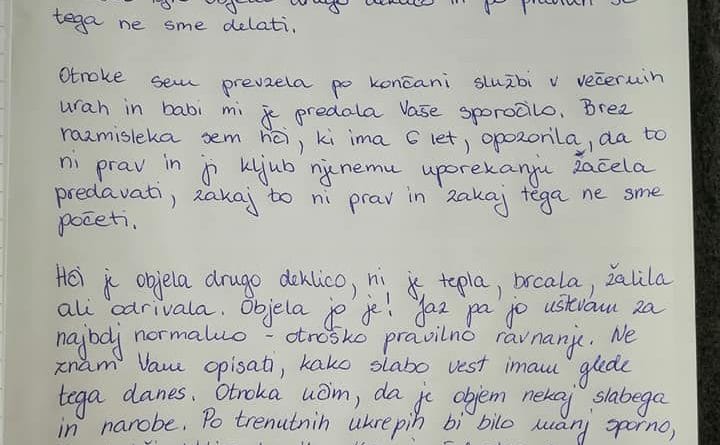 drugo deklico in po pravilih se
tega ne sme delati.
Otroke sem prevzela po končani službi v večernih
urah in babi mi je predala Vaše sporočilo. Brez
razmisleka sem hči, ki ima 6 let, opozorila, da to
ni prav in ji kljub njenemu uporekanju začela
predavati, zakaj to ni prav in zakaj tega ne sme
početi.
Hči je objela drugo deklico, ni je tepla, brcala, žalila
ali odrivala. Objela jo je! Jaz pa jo uštevam za
najbolj normalno - otroško pravilno ravnanje. Ne
znam Vam opisati, kako slabo vest imam glede
tega danes. Otroka učim, da je objem nekaj slabega
in narobe. Po trenutnih ukrepih bi bilo manj sporno,